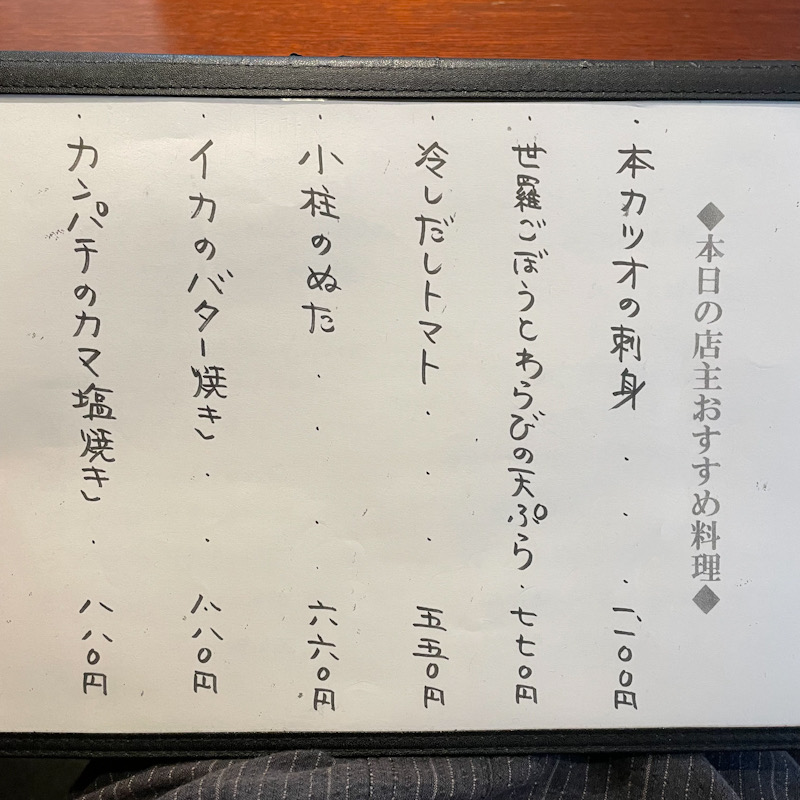 ◆本日の店主おすすめ料理◆
・本カツオの刺身・・・一、一〇〇円
・世羅ごぼうとわらびの天ぷら・七七〇円
・冷しだしトマト・・・五五〇円
・小柱のぬた・・・・六六〇円
・イカのバター焼き・・八八〇円
・カンパチのカマ塩焼き・八八〇円